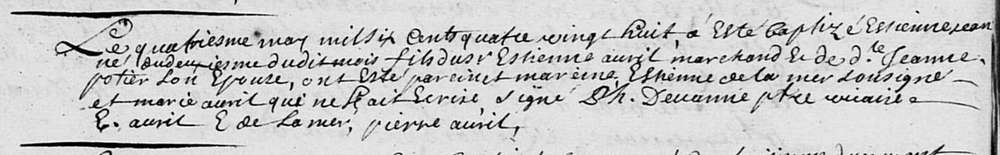 Le quatriesme may mil six cents quatre vingt huit à esté baptizé Estienne jean
né du deuxiesme dudit mois fils du sr Estienne auril marchand & de d.le Jeanne
potier son Epouze, ont esté parein et mareine Estienne de la mer sousigné
et marie auril qui ne sçait Ecrire, signé Ph. Deuanne ptre vicaire
E. auril E de Lamer, pierre auril,